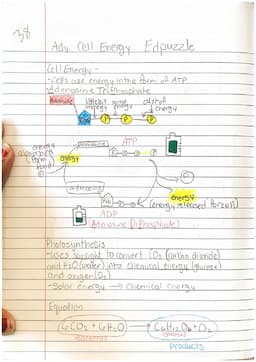 Adv. Cell Energy Edpuzzle
Cell Energy -
• Cells use energy in the form of ATP
• Adenosine TriPhosphate
energy
P P P
ATP
energy
energy
(energy released for cell)
Adenosine
ADP
(Adenosine DiPhosphate)
Photosynthesis
- Uses sunlight to convert CO2 (carbon dioxide)
and H2O (water) into chemical energy (glucose)
and oxygen (O2)
- Solar energy → Chemical energy
Equation
6CO2 + 6H2O → C6H12O6 + O2
products